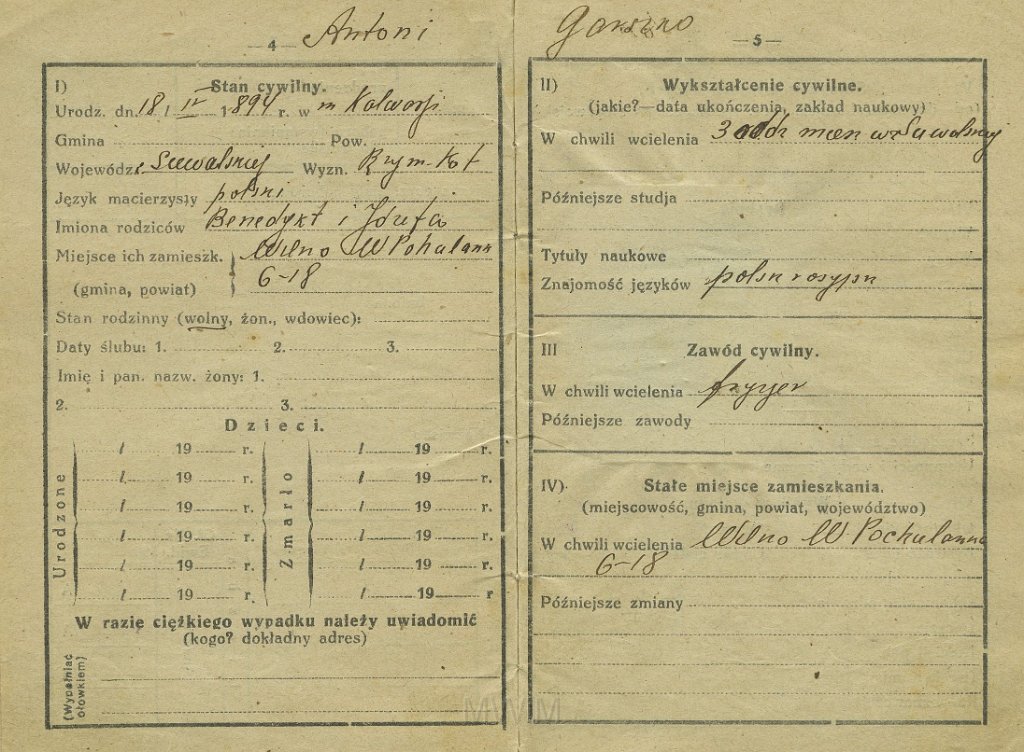 — 4 — Antoni
I) Stan cywilny.
Urodz. dn. 18 / IV 1894 r. w m Kalwarji
Gmina Pow.
Wojewódz: Suwalskiej Wyzn. Rzym-Kat
Język macierzysty polski
Imiona rodziców Benedykt i Józefa
Miejsce ich zamieszk. Wilno W Pohulanka
(gmina, powiat) 6-18
Stan rodzinny (wolny, żon., wdowiec):
Daty ślubu: 1. 2. 3.
Imię i pan. nazw. żony: 1.
2. 3.
Dzieci.
Urodzone
/ 19 r.
/ 19 r.
/ 19 r.
/ 19 r.
/ 19 r.
Zmarło
/ 19 r.
/ 19 r.
/ 19 r.
/ 19 r.
/ 19 r
W razię ciężkiego wypadku należy uwiadomić
(kogo? dokładny adres)
(Wypełniać ołówkiem)
— 5 —
II) Wykształcenie cywilne.
(jakie?—data ukończenia, zakład naukowy)
W chwili wcielenia 3
Późniejsze studja
Tytuły naukowe
Znajomość języków polski
III Zawód cywilny.
W chwili wcielenia fryzjer
Późniejsze zawody
IV) Stałe miejsce zamieszkania.
(miejscowość, gmina, powiat, województwo)
W chwili wcielenia Wilno W Pochulanna
6-18
Późniejsze zmiany
MWM